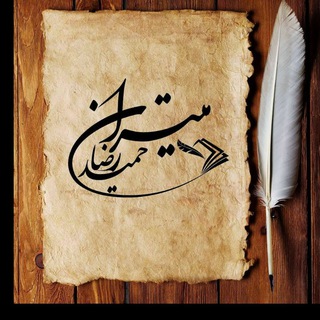 میتران
حمیدرضا